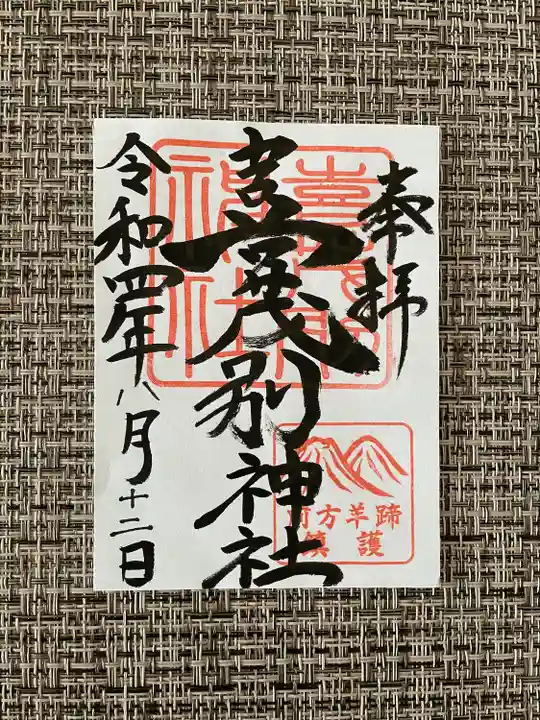 奉拝
喜茂別神社
令和四年八月十二日
南方羊蹄
鎮護